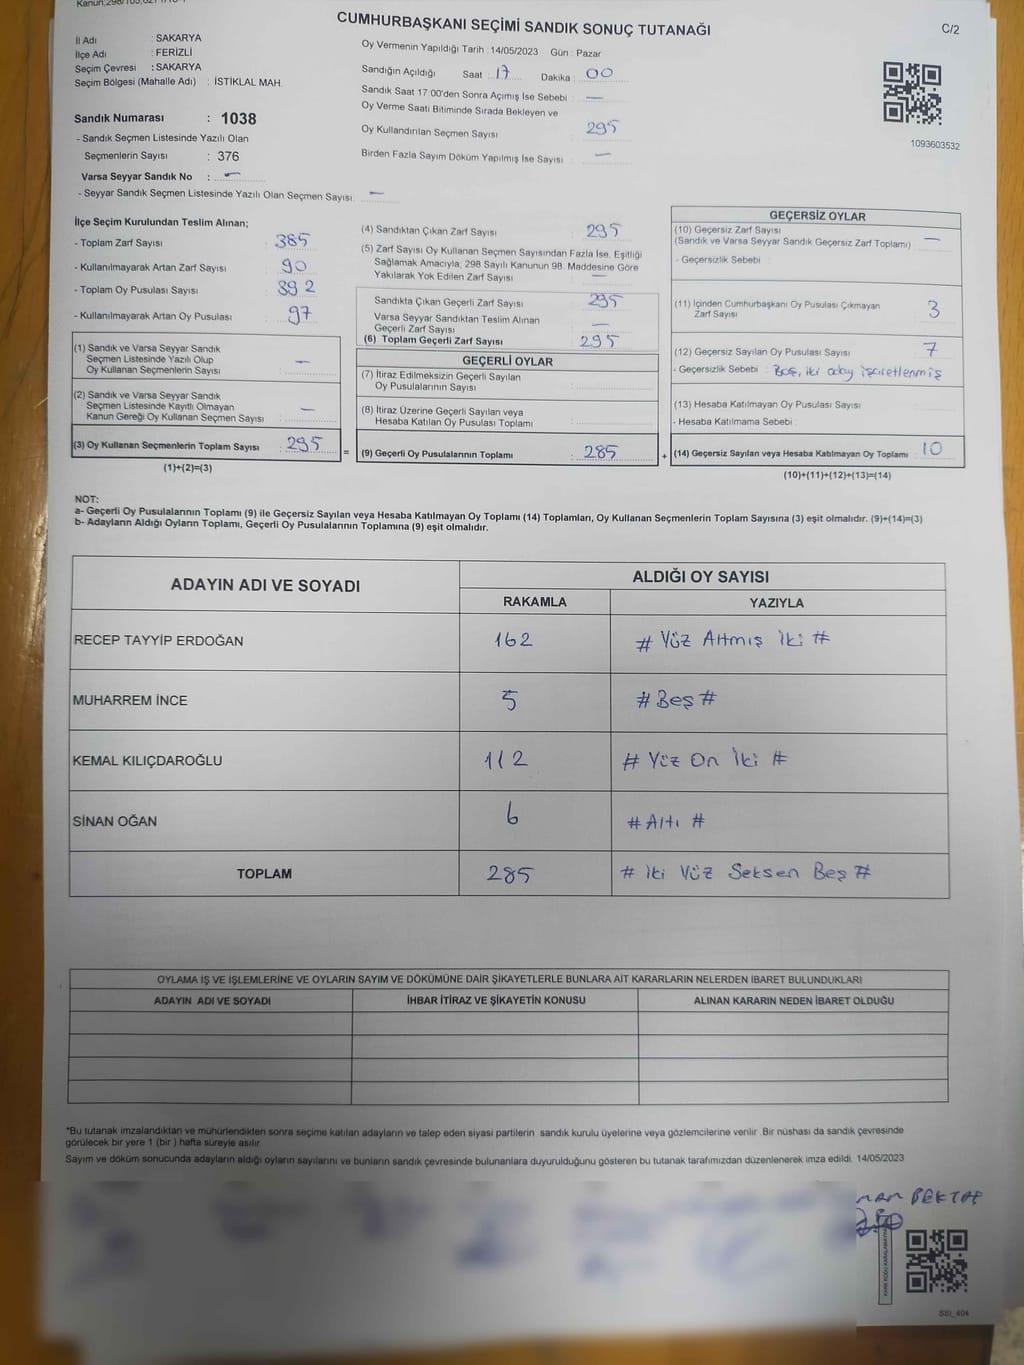 CUMHURBAŞKANI SEÇİMİ SANDIK SONUÇ TUTANAĞI
C/2
İl Adı : SAKARYA
İlçe Adı : FERİZLİ
Seçim Çevresi : SAKARYA
Seçim Bölgesi (Mahalle Adı) : İSTİKLAL MAH.
Oy Vermenin Yapıldığı Tarih : 14/05/2023 Gün : Pazar
Sandığın Açıldığı Saat : 17 Dakika : 00
Sandık Saat 17:00'den Sonra Açımış İse Sebebi : —
Oy Verme Saati Bitiminde Sırada Bekleyen ve
Oy Kullandırılan Seçmen Sayısı : 295
Birden Fazla Sayım Döküm Yapılmış İse Sayısı : —
1093603532
Sandık Numarası : 1038
- Sandık Seçmen Listesinde Yazılı Olan
Seçmenlerin Sayısı : 376
Varsa Seyyar Sandık No : —
- Seyyar Sandık Seçmen Listesinde Yazılı Olan Seçmen Sayısı: —
İlçe Seçim Kurulundan Teslim Alınan;
- Toplam Zarf Sayısı : 385
- Kullanılmayarak Artan Zarf Sayısı : 90
- Toplam Oy Pusulası Sayısı : 392
- Kullanılmayarak Artan Oy Pusulası : 97
(1) Sandık ve Varsa Seyyar Sandık
Seçmen Listesinde Yazılı Olup
Oy Kullanan Seçmenlerin Sayısı : —
(2) Sandık ve Varsa Seyyar Sandık
Seçmen Listesinde Kayıtlı Olmayan
Kanun Gereği Oy Kullanan Seçmen Sayısı : —
(3) Oy Kullanan Seçmenlerin Toplam Sayısı : 295
(1)+(2)=(3)
(4) Sandıktan Çıkan Zarf Sayısı : 295
(5) Zarf Sayısı Oy Kullanan Seçmen Sayısından Fazla İse, Eşitliği
Sağlamak Amacıyla, 298 Sayılı Kanunun 98. Maddesine Göre
Yakılarak Yok Edilen Zarf Sayısı : —
Sandıkta Çıkan Geçerli Zarf Sayısı : 295
Varsa Seyyar Sandıktan Teslim Alınan
Geçerli Zarf Sayısı : —
(6) Toplam Geçerli Zarf Sayısı : 295
GEÇERLİ OYLAR
(7) İtiraz Edilmeksizin Geçerli Sayılan
Oy Pusulalarının Sayısı :
(8) İtiraz Üzerine Geçerli Sayılan veya
Hesaba Katılan Oy Pusulası Toplamı :
= (9) Geçerli Oy Pusulalarının Toplamı : 285
GEÇERSİZ OYLAR
(10) Geçersiz Zarf Sayısı
(Sandık ve Varsa Seyyar Sandık Geçersiz Zarf Toplamı) : —
- Geçersizlik Sebebi :
(11) İçinden Cumhurbaşkanı Oy Pusulası Çıkmayan
Zarf Sayısı : 3
(12) Geçersiz Sayılan Oy Pusulası Sayısı : 7
- Geçersizlik Sebebi : Boş, iki aday işaretlenmiş
(13) Hesaba Katılmayan Oy Pusulası Sayısı :
- Hesaba Katılmama Sebebi :
+ (14) Geçersiz Sayılan veya Hesaba Katılmayan Oy Toplamı : 10
(10)+(11)+(12)+(13)=(14)
NOT:
a- Geçerli Oy Pusulalarının Toplamı (9) ile Geçersiz Sayılan veya Hesaba Katılmayan Oy Toplamı (14) Toplamları, Oy Kullanan Seçmenlerin Toplam Sayısına (3) eşit olmalıdır. (9)+(14)=(3)
b- Adayların Aldığı Oyların Toplamı, Geçerli Oy Pusulalarının Toplamına (9) eşit olmalıdır.
ADAYIN ADI VE SOYADI
ALDIĞI OY SAYISI
RAKAMLA YAZIYLA
RECEP TAYYİP ERDOĞAN 162 # Yüz Altmış İki #
MUHARREM İNCE 5 # Beş #
KEMAL KILIÇDAROĞLU 112 # Yüz On İki #
SİNAN OĞAN 6 # Altı #
TOPLAM 285 # İki Yüz Seksen Beş #
OYLAMA İŞ VE İŞLEMLERİNE VE OYLARIN SAYIM VE DÖKÜMÜNE DAİR ŞİKAYETLERLE BUNLARA AİT KARARLARIN NELERDEN İBARET BULUNDUKLARI
ADAYIN ADI VE SOYADI İHBAR İTİRAZ VE ŞİKAYETİN KONUSU ALINAN KARARIN NEDEN İBARET OLDUĞU
*Bu tutanak imzalandıktan ve mühürlendikten sonra seçime katılan adayların ve talep eden siyasi partilerin sandık kurulu üyelerine veya gözlemcilerine verilir. Bir nüshası da sandık çevresinde
görülecek bir yere 1 (bir ) hafta süreyle asılır.
Sayım ve döküm sonucunda adayların aldığı oyların sayılarını ve bunların sandık çevresinde bulunanlara duyurulduğunu gösteren bu tutanak tarafımızdan düzenlenerek imza edildi. 14/05/2023
BEKTAŞ
SSI_404